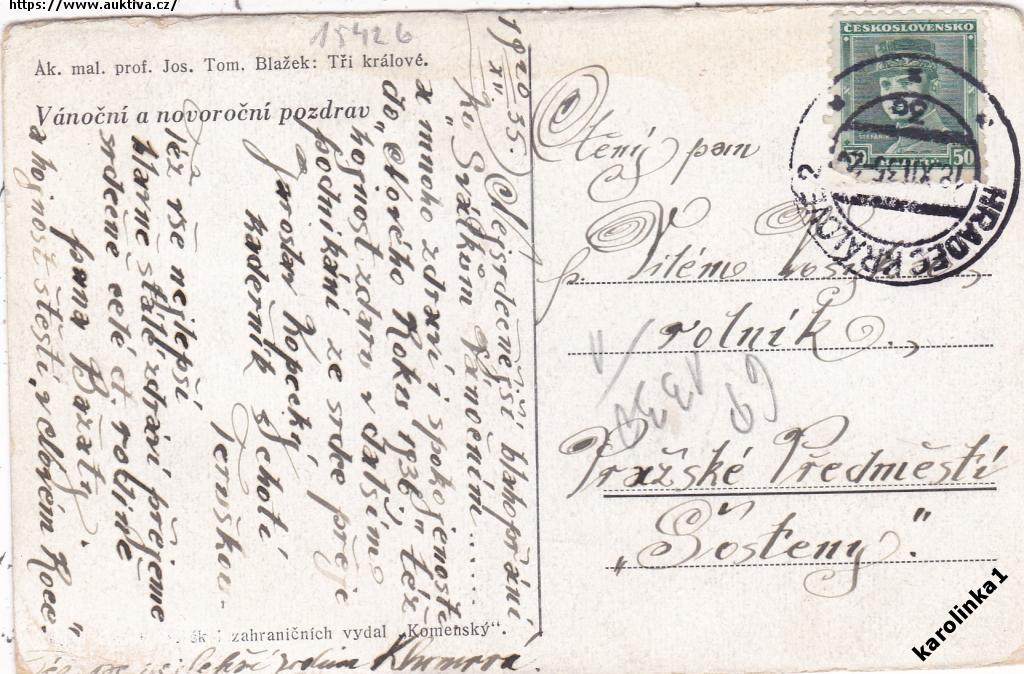 https://www.auktiva.cz/
15426
Ak. mal. prof. Jos. Tom. Blažek: Tři králové.
Vánoční a novoroční pozdrav
19 20/XII. 35.
Nejsrdečnější blahopřání
Ku „Svátkům Vánočním......
a mnoho zdraví i spokojenosti
do „Nového Roku 1936" též
hojnost zdaru v dalšímu
podnikání ze srdce přeje
Jaroslav Kopecký
kadeřník s chotí
Též vše nejlepší
hlavně stálé zdraví přejeme
srdečně celé ct. rodině
a hojnost štěstí „v Novém Roce"
zahraničních vydal „Komenský".
rodina
ČESKOSLOVENSKO
ŠTEFÁNIK
50
HRADEC KRÁLOVÉ 2
XII. 35
Ctěný pan
p. Vilém
rolník.,
Pražské Předměstí
„Šosteny."
karolinka1